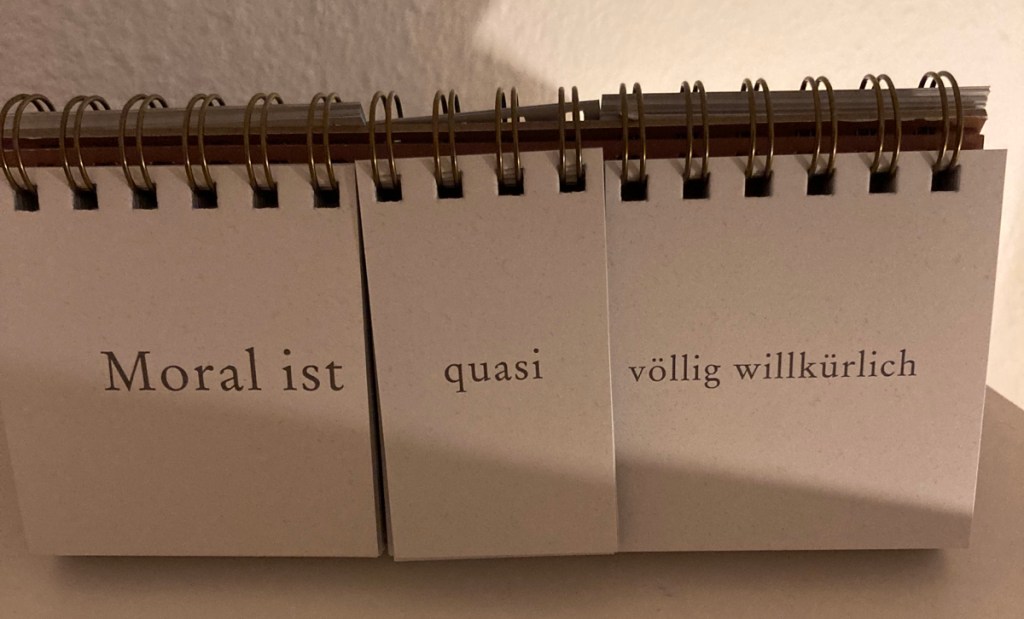 Moral ist quasi völlig willkürlich